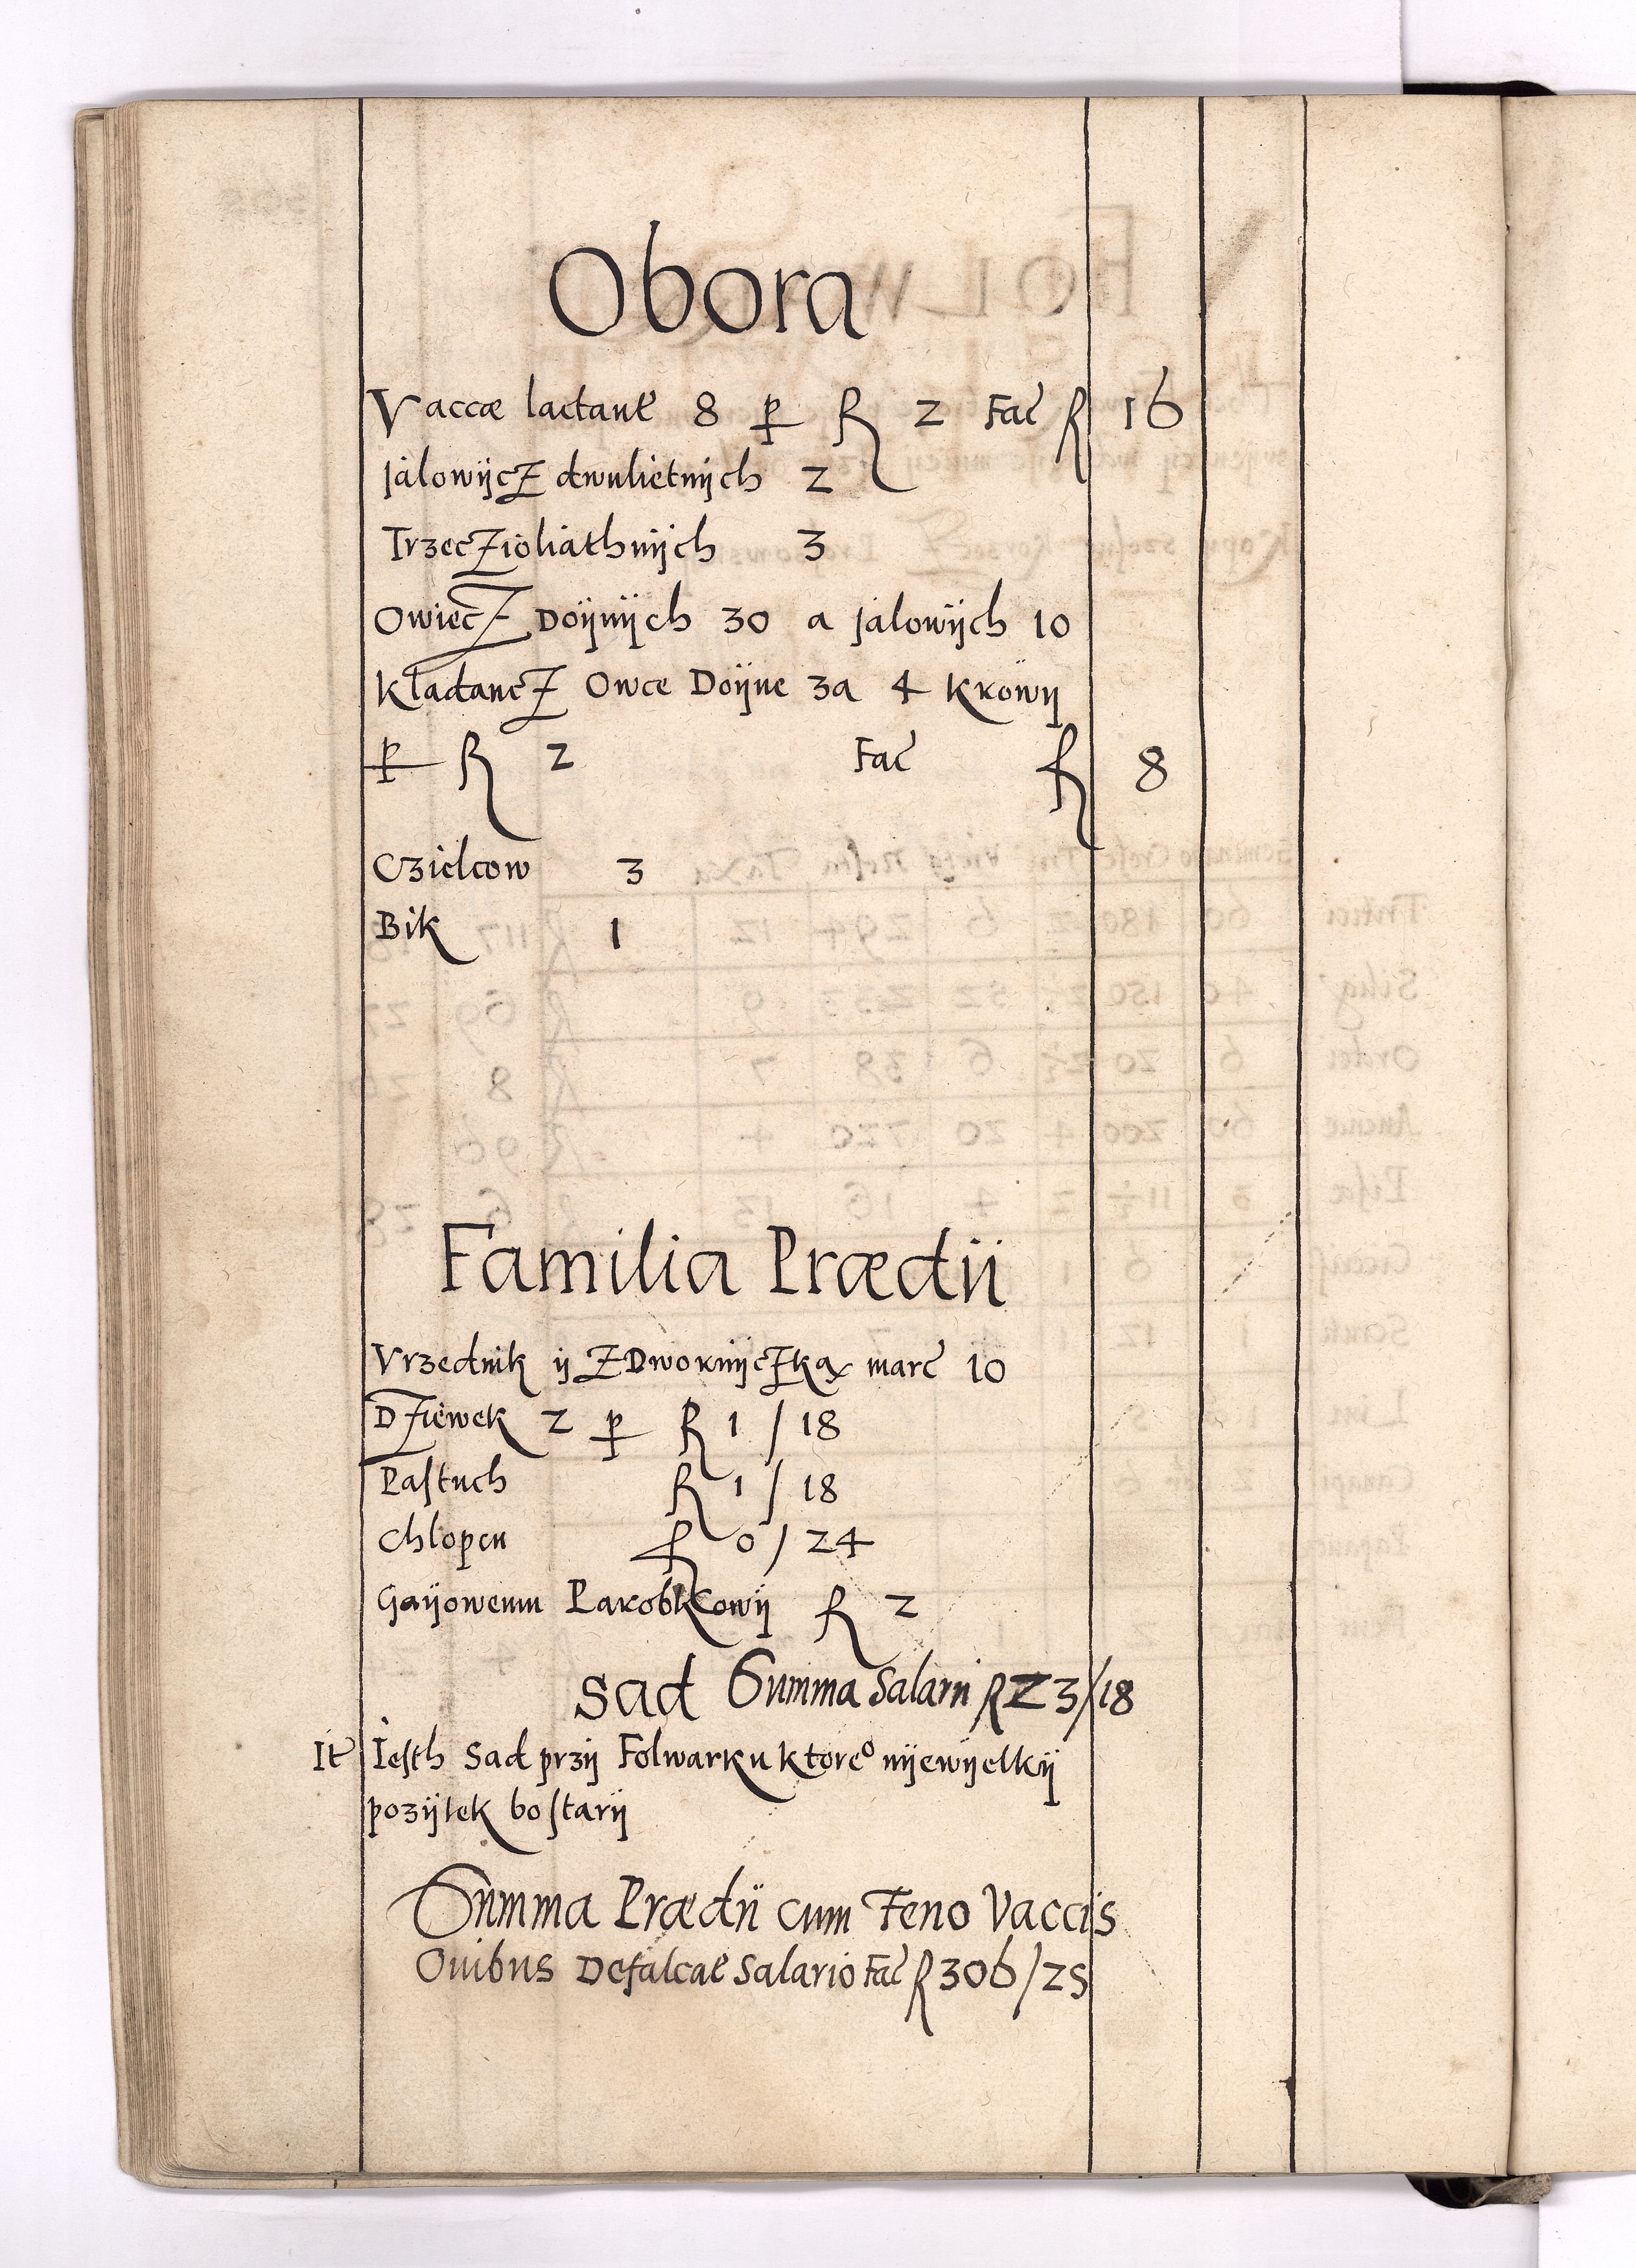 Obora
Vaccæ lactanť 8 ꝑ ꝶ 2 Fać ꝶ 16
jalowijcz dwulietnijch 2
Trzeczioliathnijch 3
Owiecz Doijnijch 30 a jalowijch 10
Kladancz Owce Doijne za 4 Krowij
ꝑ ꝶ 2 Fać ꝶ 8
Czielcow 3
Bik 1
Familia Prædii
Vrzednik ij z Dwornijczką marć 10
Dziewek 2 ꝑ ꝶ 1 / 18
Paſtuch ꝶ 1 / 18
Chlopcu ꝶ 0 / 24
Gaijowemu Parobkowij ꝶ 2
Sad Summa Salarii ꝶ 23/18
Iť Ieſth Sad przij Folwarku ktoreᵒ nijewijelkij
pozijtek bo ſtarij
Summa Prædii cum Feno Vaccis
Ouibus Defalcať Salario Fać ꝶ 306/25